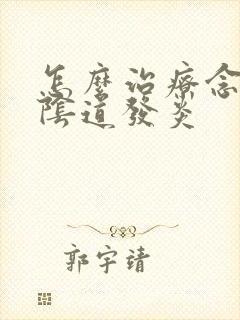 怎麼治療念
陰道發炎
郭宇靖